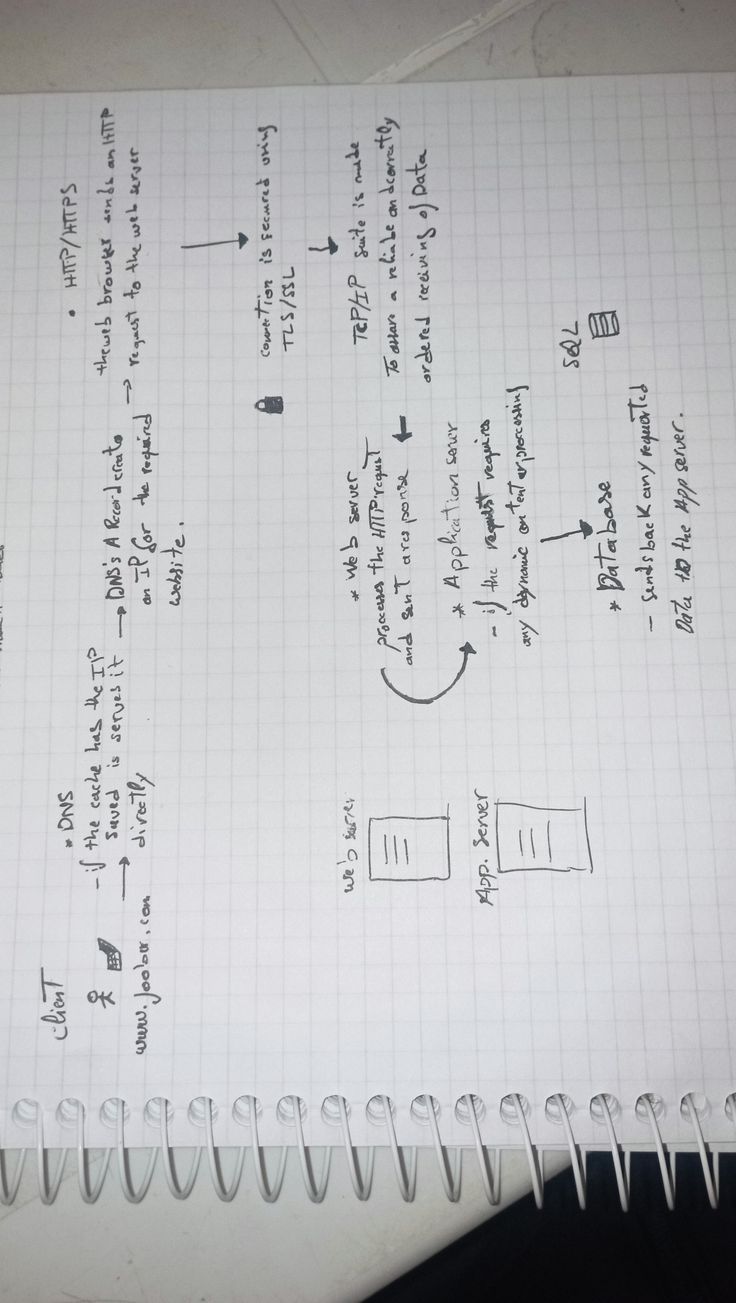 Client
www.foobar.com
* DNS
- if the cache has the IP
saved is serves it
directly
DNS's A Record create
an IP for the required
website.
• HTTP/HTTPS
the web browser sends an HTTP
request to the web server
connection is secured using
TLS/SSL
TCP/IP suite is made
To assure a reliabe and correctly
ordered receiving of Data
* Web server
proccesses the HTTP request
and sent a response
* Application server
- if the request requires
any dynamic content or proccessing
SQL
* Database
- Sends back any requested
Data to the App server.
web server
App. Server